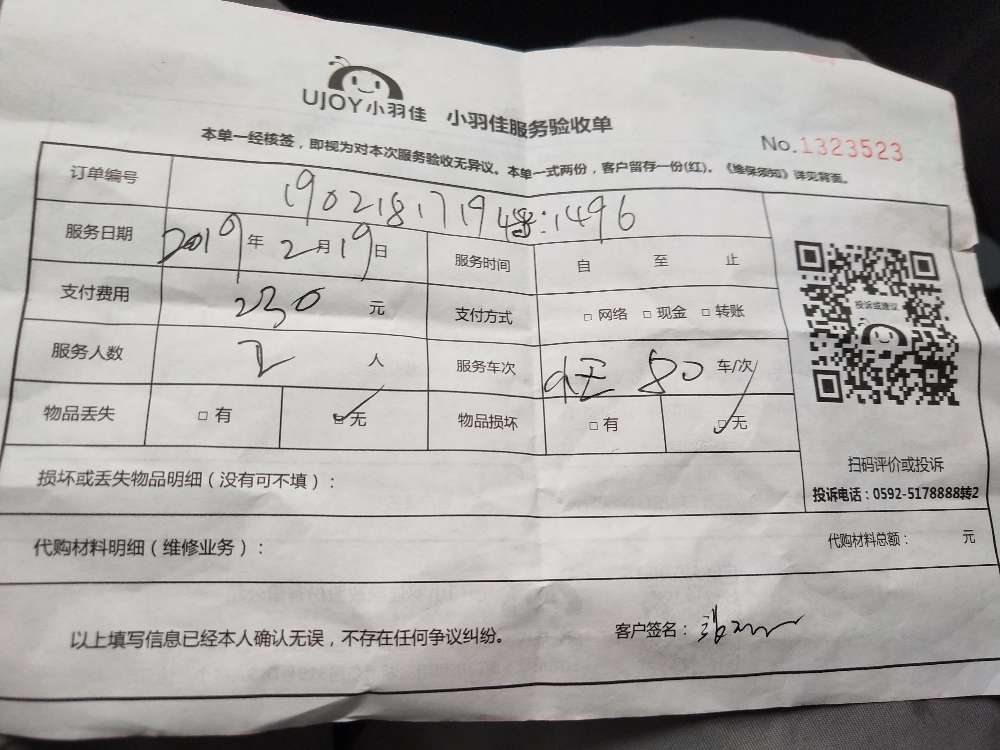 UJOY小羽佳 小羽佳服务验收单
No.1323523
本单一经核签，即视为对本次服务验收无异议。本单一式两份，客户留存一份(红)。《维保须知》详见背面。
订单编号 190218171948:1496
服务日期 2019年2月19日 服务时间 自 至 止
支付费用 230 元 支付方式 □网络 □现金 □转账
投诉或建议
服务人数 2 人 服务车次 80 车/次
物品丢失 □有 ☑无 物品损坏 □有 ☑无
扫码评价或投诉
损坏或丢失物品明细（没有可不填）：
投诉电话：0592-5178888转2
代购材料明细（维修业务）： 代购材料总额： 元
以上填写信息已经本人确认无误，不存在任何争议纠纷。 客户签名：